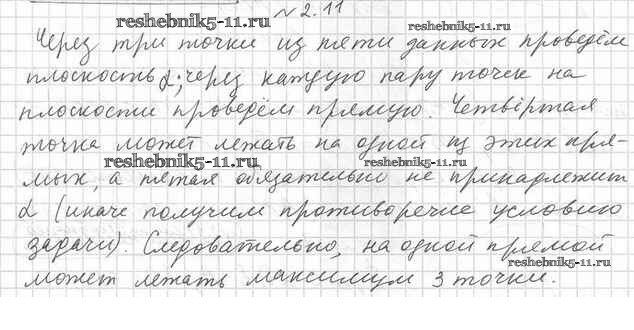 reshebnik5-11.ru
№2.11
reshebnik5-11.ru
Через три точки из пяти данных проведём
плоскость α; через каждую пару точек на
плоскости проведём прямую. Четвёртая
точка может лежать на одной из этих пря-
reshebnik5-11.ru
reshebnik5-11.ru
мых, а пятая обязательно не принадлежит
α (иначе получим противоречие условию
задачи). Следовательно, на одной прямой
reshebnik5-11.ru
может лежать максимум 3 точки.